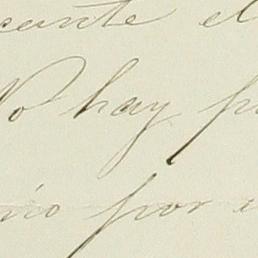 cante el
No hay p
nio por